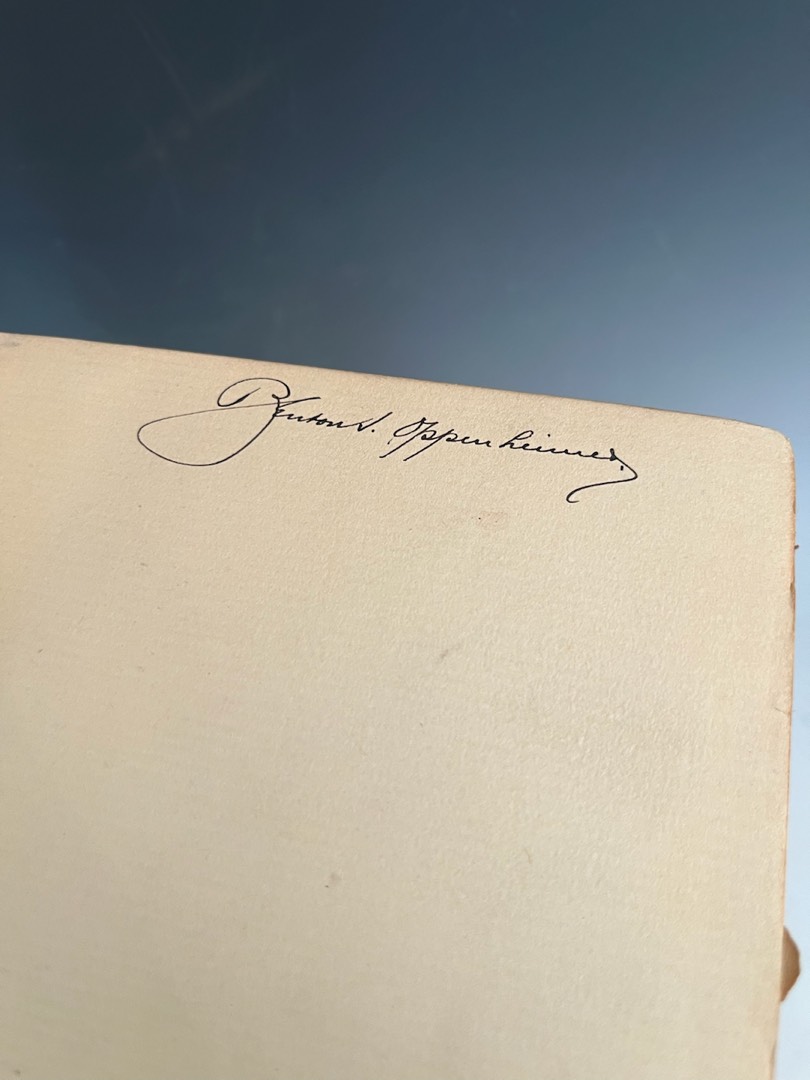 Benton S. Oppenheimer.